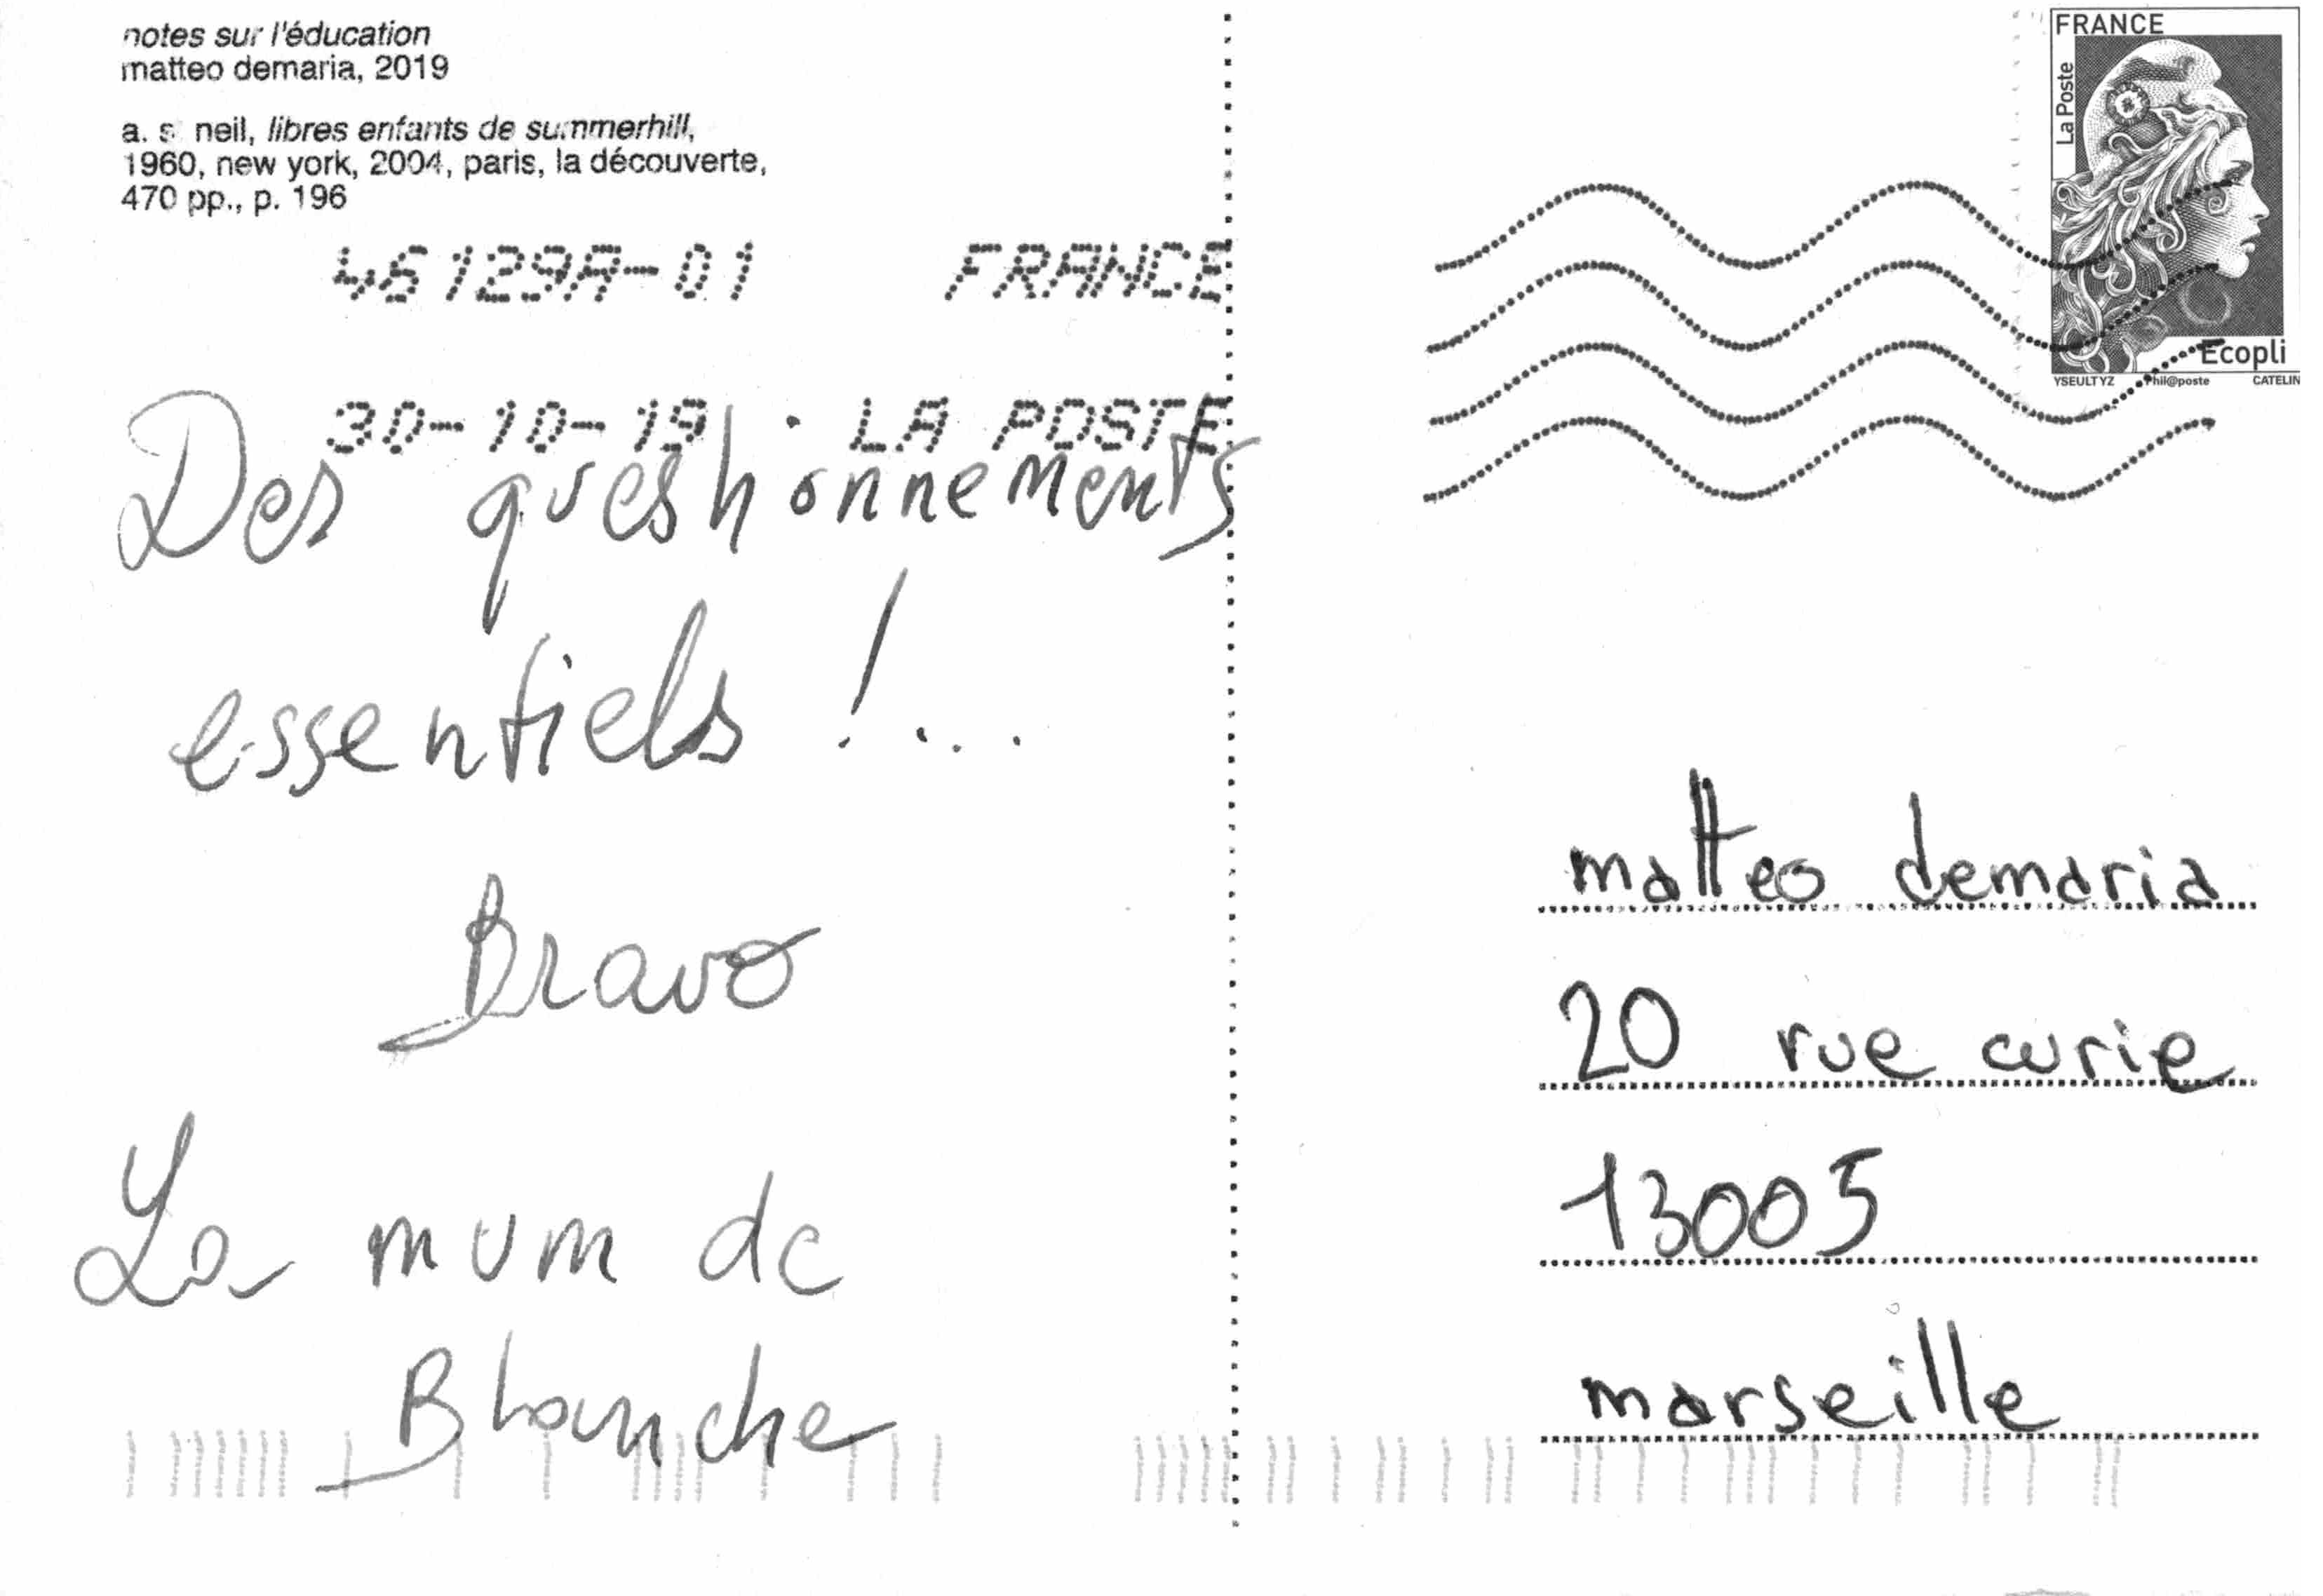 notes sur l'éducation
matteo demaria, 2019
a. s. neil, libres enfants de summerhill,
1960, new york, 2004, paris, la découverte,
470 pp., p. 196
46129A-01 FRANCE
30-10-19 LA POSTE
Des questionnements
essentiels !...
Bravo
La mum de
Blanche
FRANCE
La Poste
Ecopli
YSEULT YZ Phil@poste CATELIN
matteo demaria
20 rue curie
13005
marseille